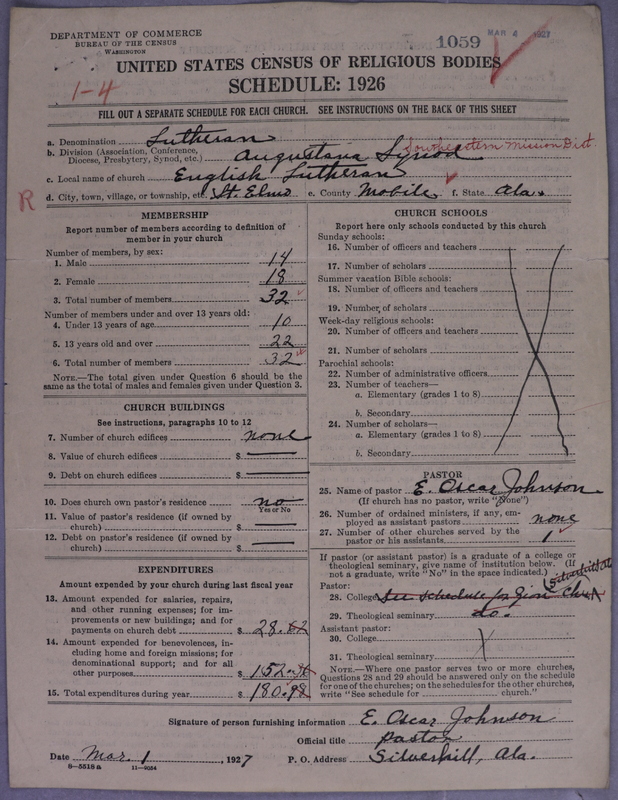 DEPARTMENT OF COMMERCE
BUREAU OF THE CENSUS
WASHINGTON
1059
MAR 4 1927
UNITED STATES CENSUS OF RELIGIOUS BODIES
SCHEDULE: 1926
1-4
FILL OUT A SEPARATE SCHEDULE FOR EACH CHURCH. SEE INSTRUCTIONS ON THE BACK OF THIS SHEET
a. Denomination Lutheran
b. Division (Association, Conference, Diocese, Presbytery, Synod, etc.) Augustana Synod Southeastern Mission Dist.
c. Local name of church English Lutheran
R
d. City, town, village, or township, etc. St. Elmo e. County Mobile f. State Ala.
MEMBERSHIP
Report number of members according to definition of
member in your church
Number of members, by sex:
1. Male 14
2. Female 18
3. Total number of members 32
Number of members under and over 13 years old:
4. Under 13 years of age 10
5. 13 years old and over 22
6. Total number of members 32
NOTE.—The total given under Question 6 should be the
same as the total of males and females given under Question 3.
CHURCH BUILDINGS
See instructions, paragraphs 10 to 12
7. Number of church edifices none
8. Value of church edifices $
9. Debt on church edifices $
10. Does church own pastor's residence no
Yes or No
11. Value of pastor's residence (if owned by
church) $
12. Debt on pastor's residence (if owned by
church) $
EXPENDITURES
Amount expended by your church during last fiscal year
13. Amount expended for salaries, repairs,
and other running expenses; for im-
provements or new buildings; and for
payments on church debt $ 28.62
14. Amount expended for benevolences, in-
cluding home and foreign missions; for
denominational support; and for all
other purposes $ 152.36
15. Total expenditures during year $ 180.98
CHURCH SCHOOLS
Report here only schools conducted by this church
Sunday schools:
16. Number of officers and teachers
17. Number of scholars
Summer vacation Bible schools:
18. Number of officers and teachers
19. Number of scholars
Week-day religious schools:
20. Number of officers and teachers
21. Number of scholars
Parochial schools:
22. Number of administrative officers
23. Number of teachers—
a. Elementary (grades 1 to 8)
b. Secondary
24. Number of scholars—
a. Elementary (grades 1 to 8)
b. Secondary
PASTOR
25. Name of pastor E. Oscar Johnson
(If church has no pastor, write "None")
26. Number of ordained ministers, if any, em-
ployed as assistant pastors none
27. Number of other churches served by the
pastor or his assistants. 1
If pastor (or assistant pastor) is a graduate of a college or
theological seminary, give name of institution below. (If
not a graduate, write "No" in the space indicated.)
Pastor:
28. College See schedule for Zion Church
29. Theological seminary do.
Assistant pastor:
30. College
31. Theological seminary
NOTE.—Where one pastor serves two or more churches,
Questions 28 and 29 should be answered only on the schedule
for one of the churches; on the schedules for the other churches,
write "See schedule for church."
Signature of person furnishing information E. Oscar Johnson
Official title Pastor
Date Mar. 1, 1927 P. O. Address Silverhill, Ala.
8—5518a 11—9054